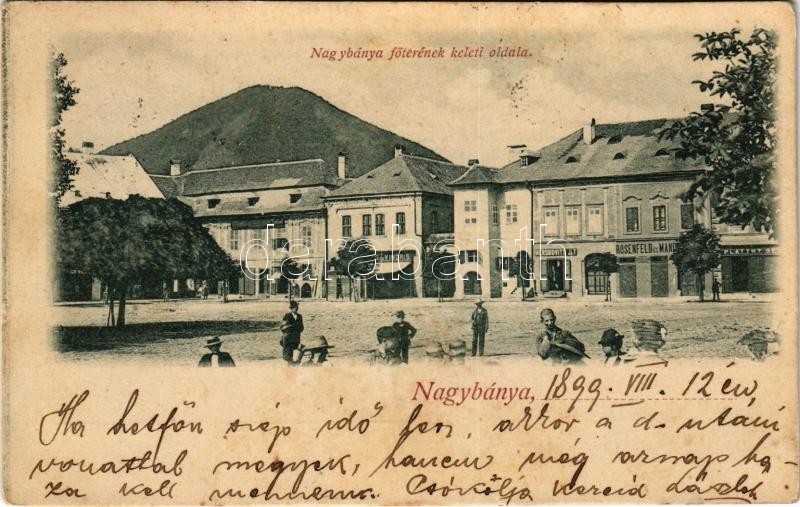 Nagybánya főterének keleti oldala.
ROSENFELD ÉS MAN
darabanth
Nagybánya, 1899. VIII. 12 én
Ha hetfőn szép idő lesz, akkor a d. utáni
vonattal megyek, hanem még aznap ha-
za kell mennem. Csókolja kezeid László